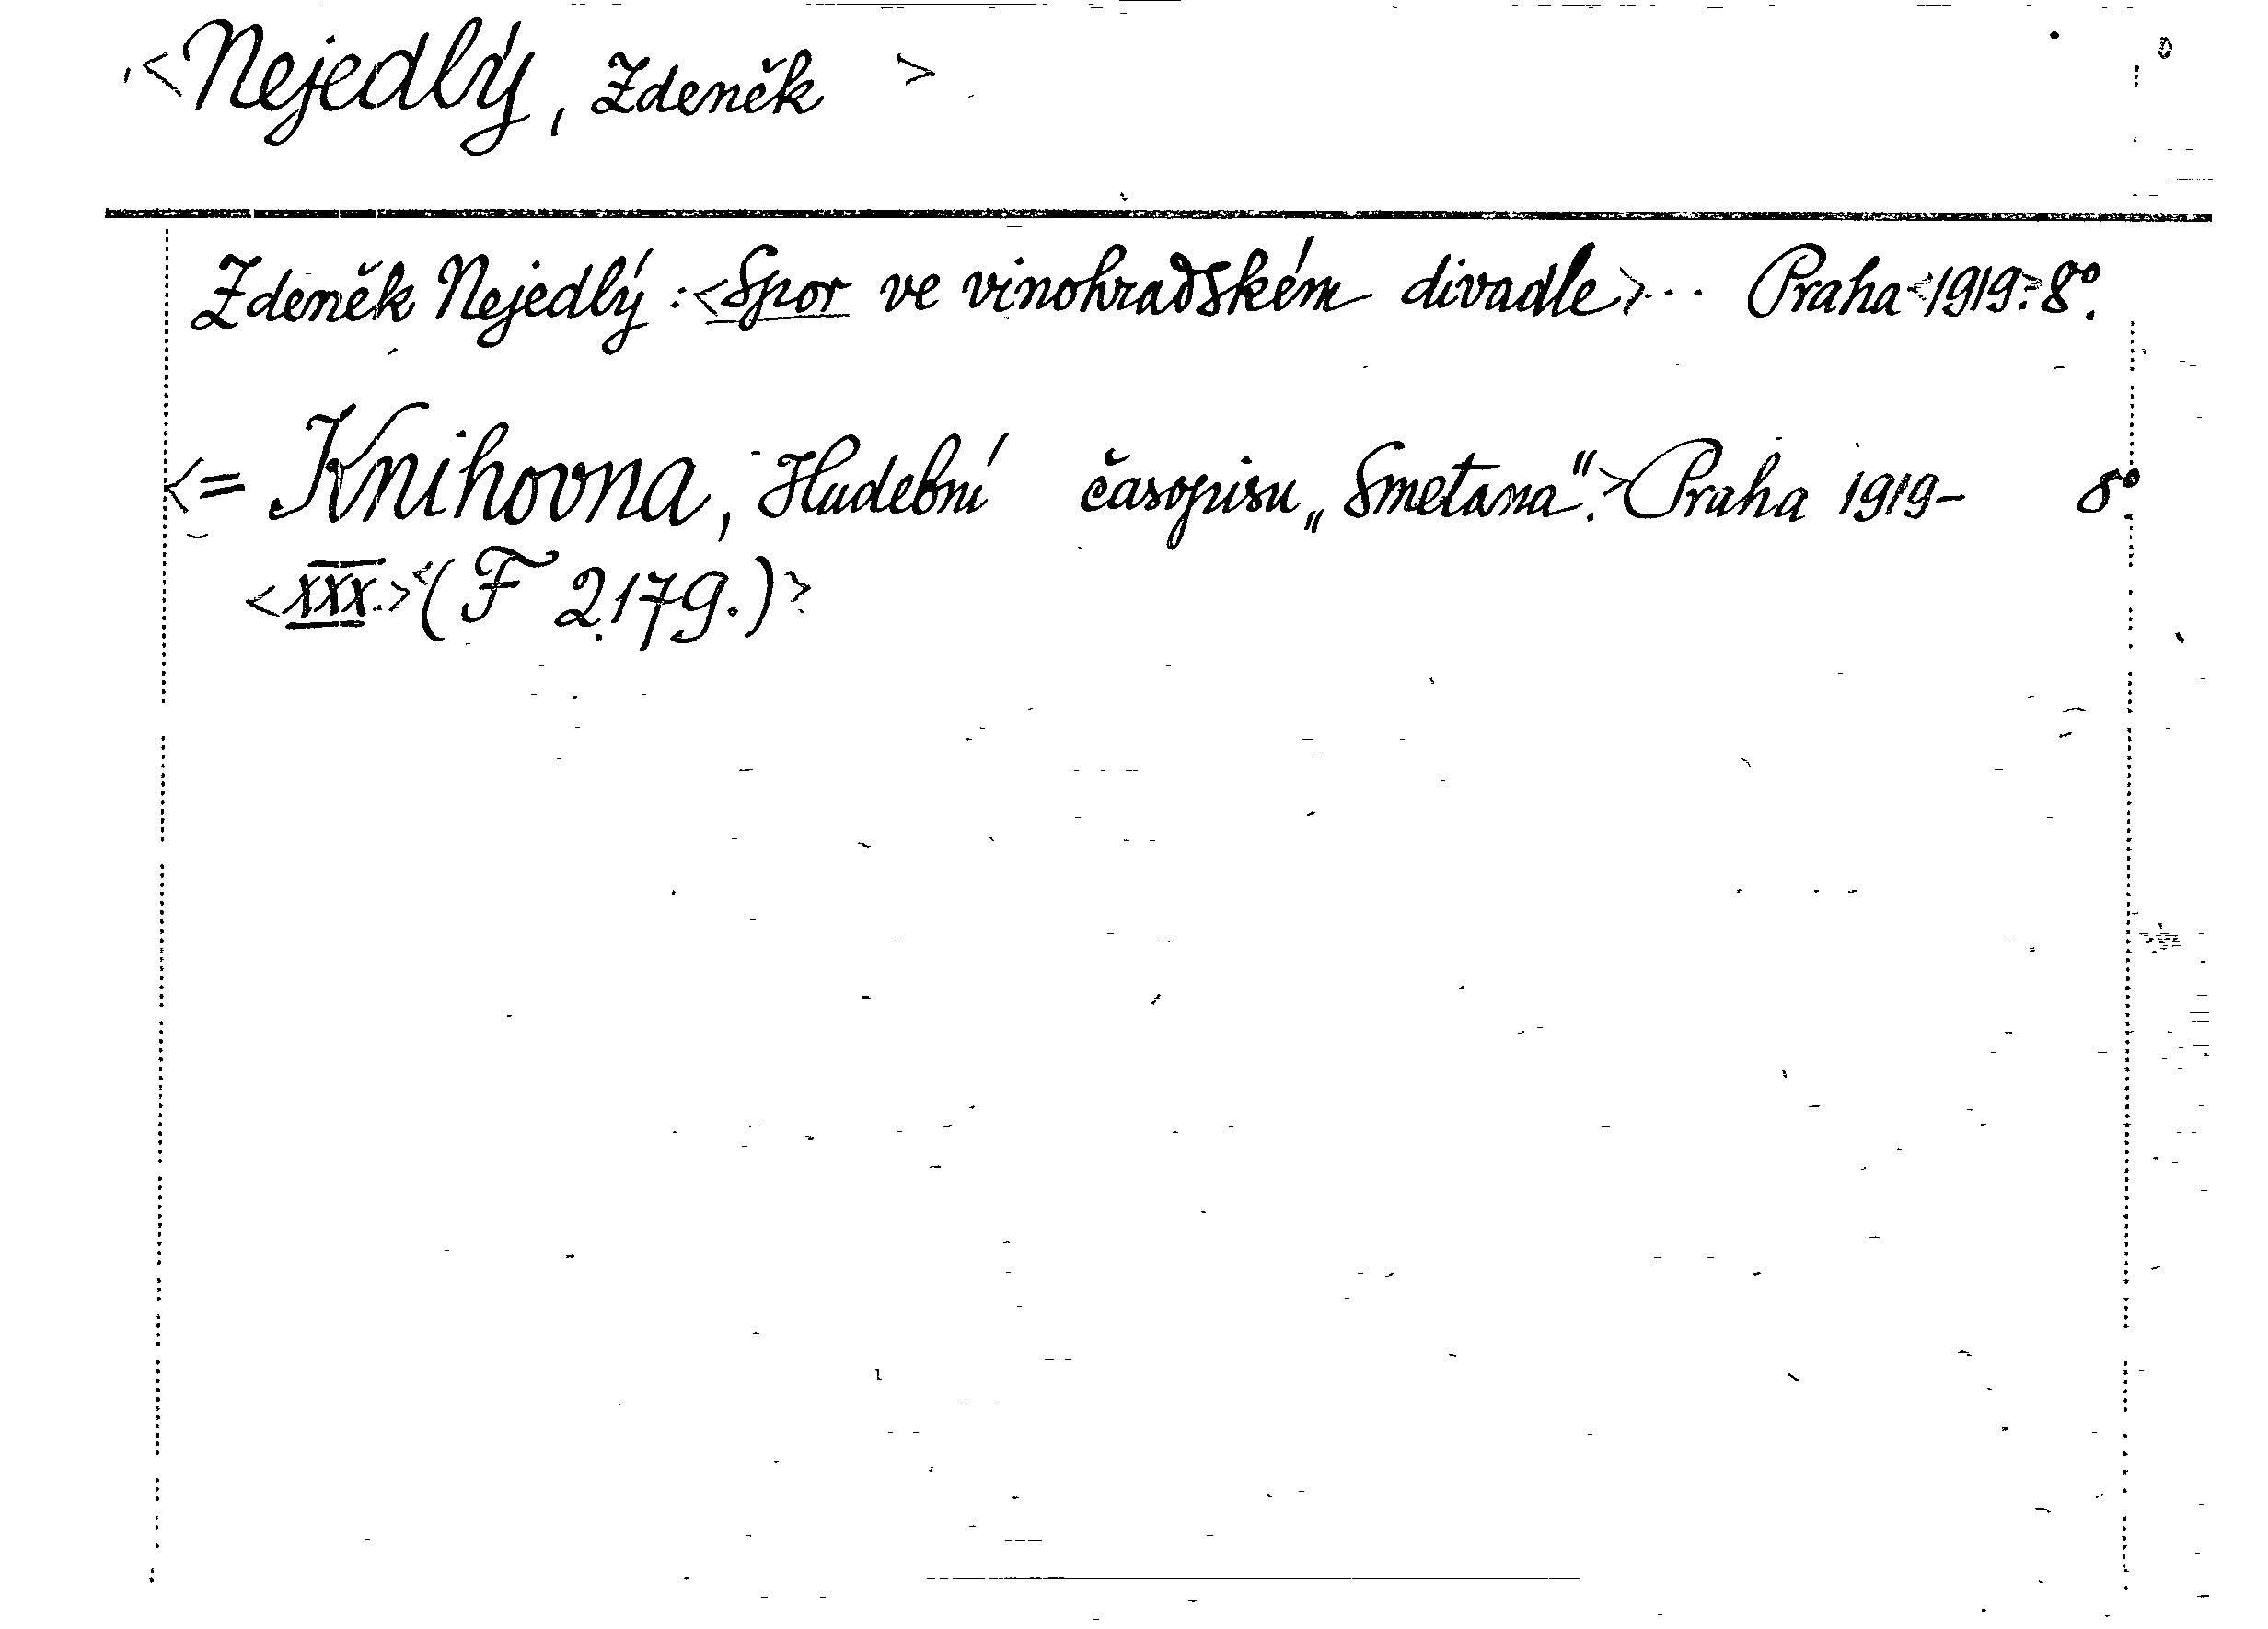 <Nejedlý, Zdeněk >
Zdeněk Nejedlý : <Spor ve vinohradském divadle>... Praha <1919.> 8°.
<= Knihovna, Hudební časopisu „Smetana“.> Praha 1919- 8°.
<XXX.> <(F 2179.)>